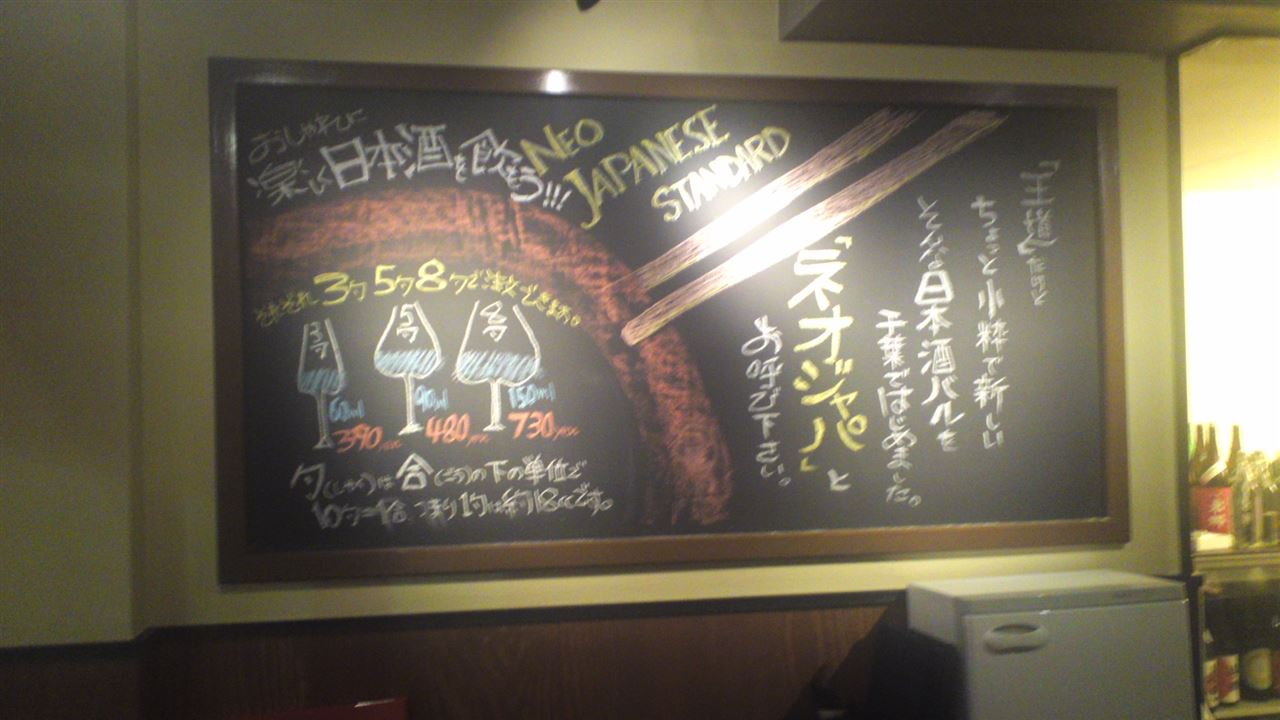 おしゃれに
楽しい日本酒を飲もう!!!
NEO
JAPANESE
STANDARD
それぞれ3勺5勺8勺で注文できます。
3勺
5勺
8勺
60ml
90ml
150ml
390yen
480yen
730yen
勺(しゃく)は合(ごう)の下の単位で
10勺=1合、つまり1勺は約18ccです。
ちょっと小粋で新しい
そんな日本酒バルを
千葉ではじめました。
「ネオジャパ」と
お呼び下さい。